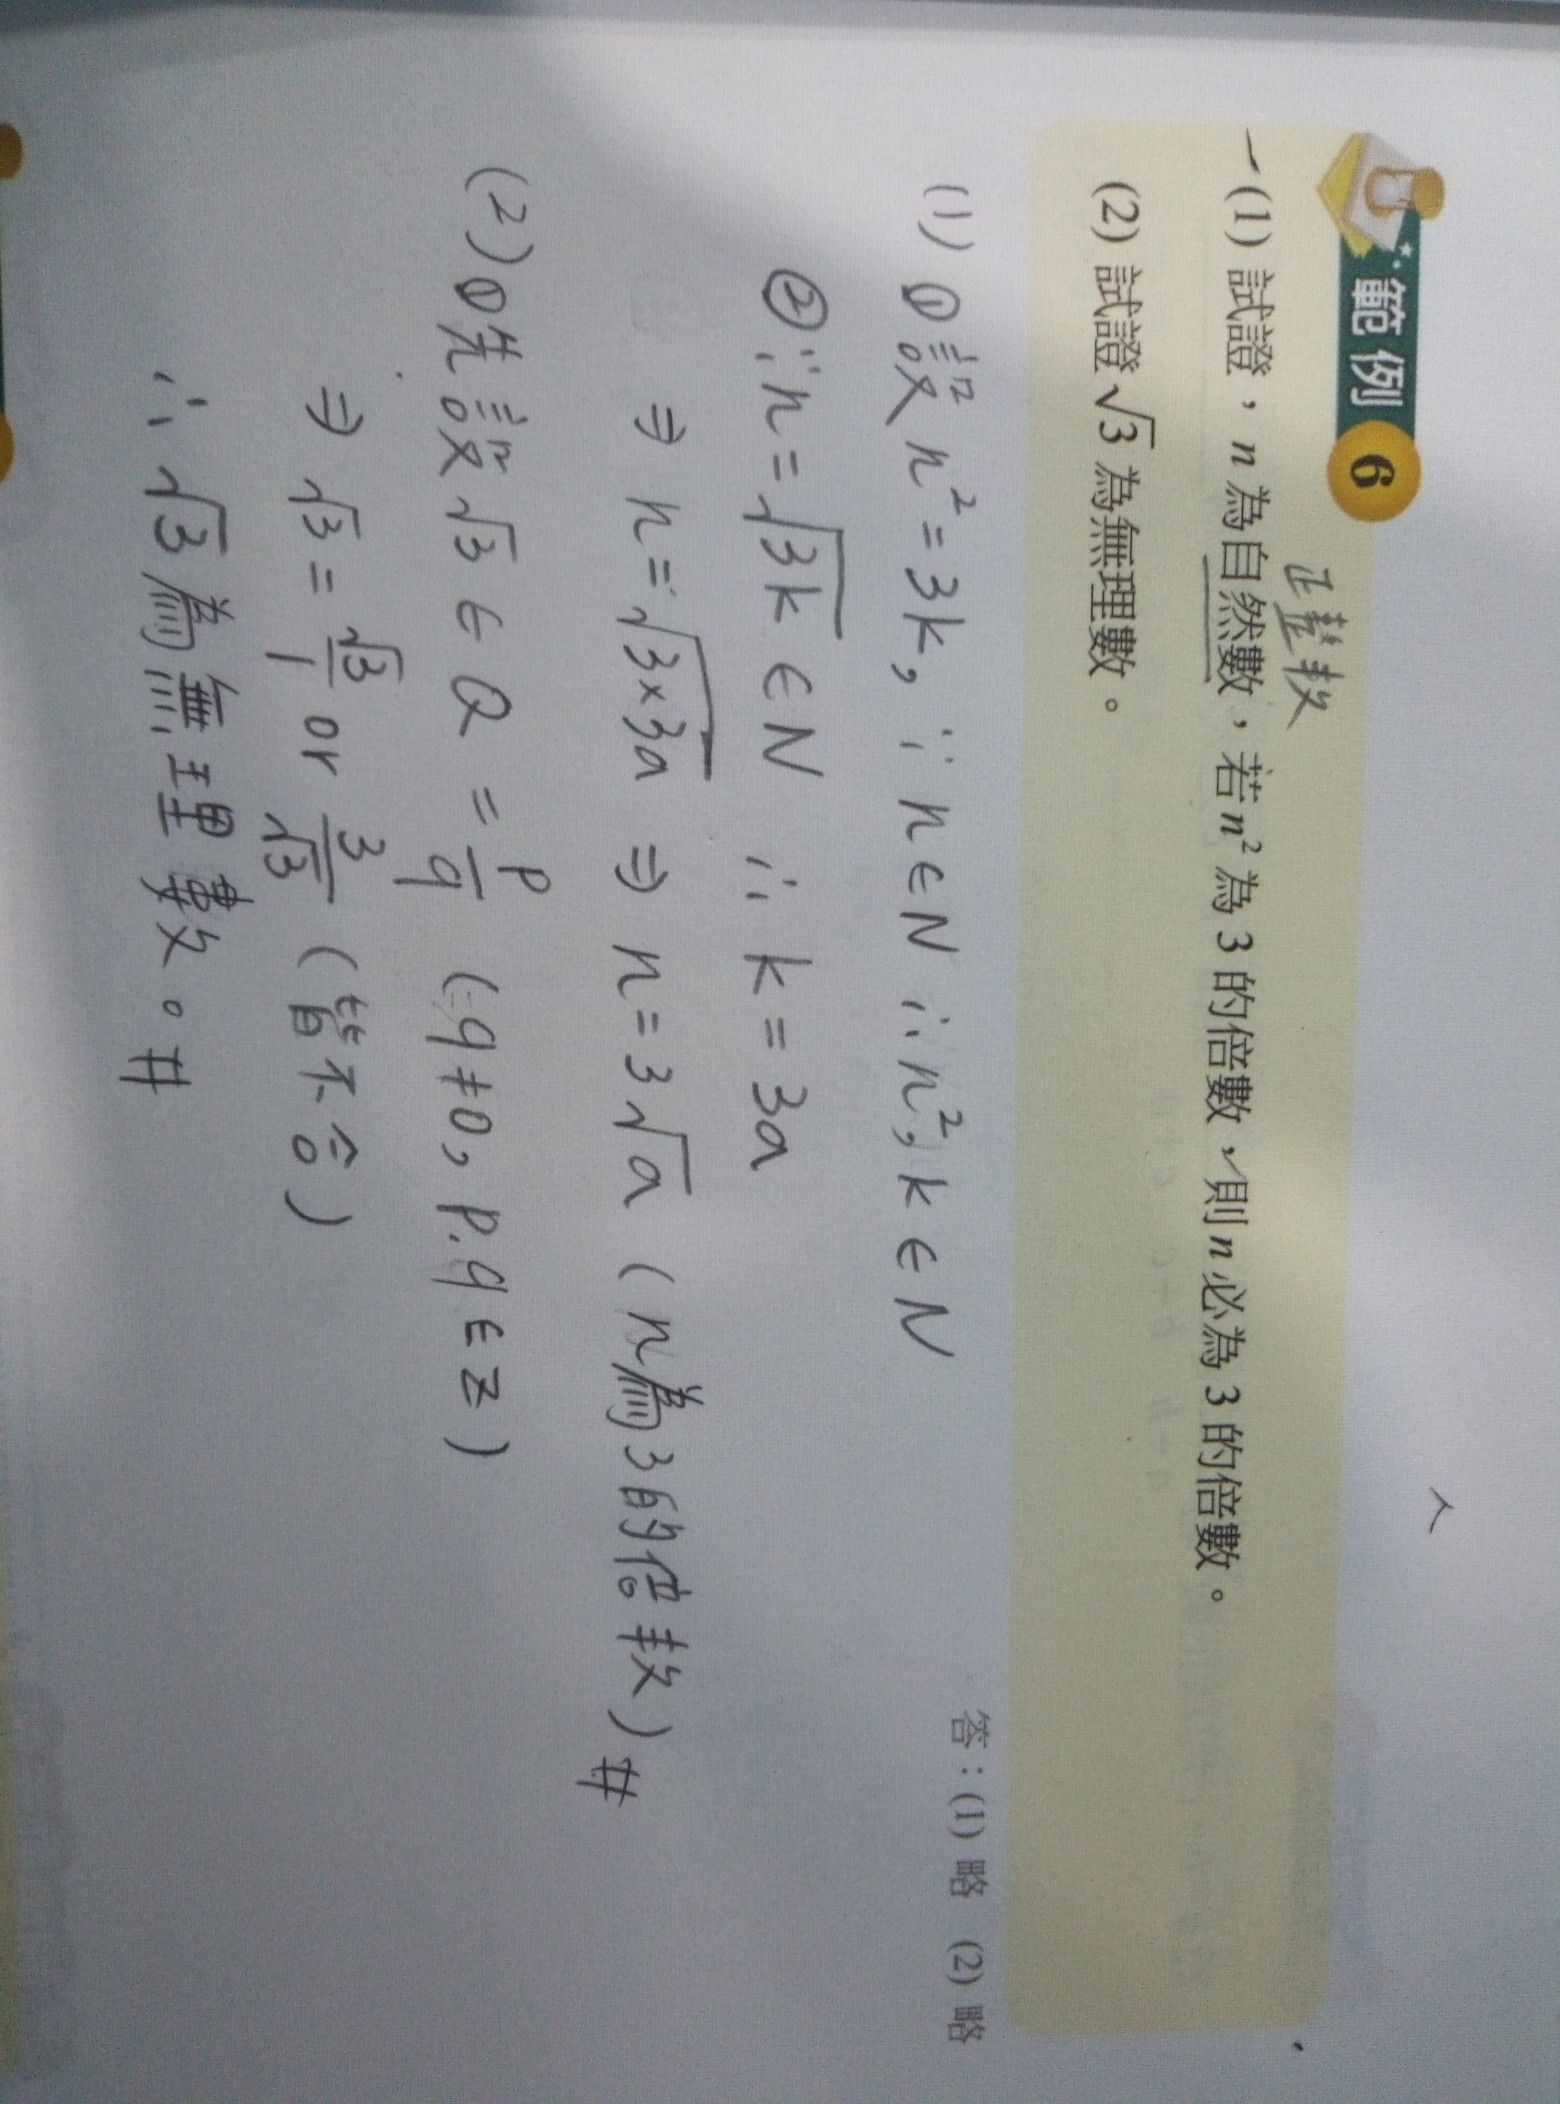 範例 6
正整数
(1) 試證，n 為自然數，若 n² 為 3 的倍數，則 n 必為 3 的倍數。
(2) 試證 √3 為無理數。
答：(1) 略 (2) 略
(1) ① 設 n² = 3k, ∵ n ∈ N ∴ n², k ∈ N
② ∵ n = √3k ∈ N ∴ k = 3a
⇒ n = √3×3a ⇒ n = 3√a (n為3的倍数) #
(2) ① 先設 √3 ∈ Q = p/q (q≠0, p.q ∈ Z)
⇒ √3 = √3/1 or 3/√3 (皆不合)
∴ √3 為無理數。#